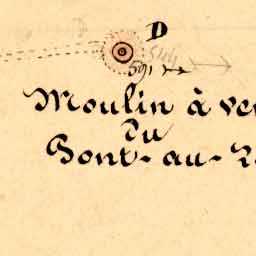 D
591
Moulin à ve
Du
Pont-au-R